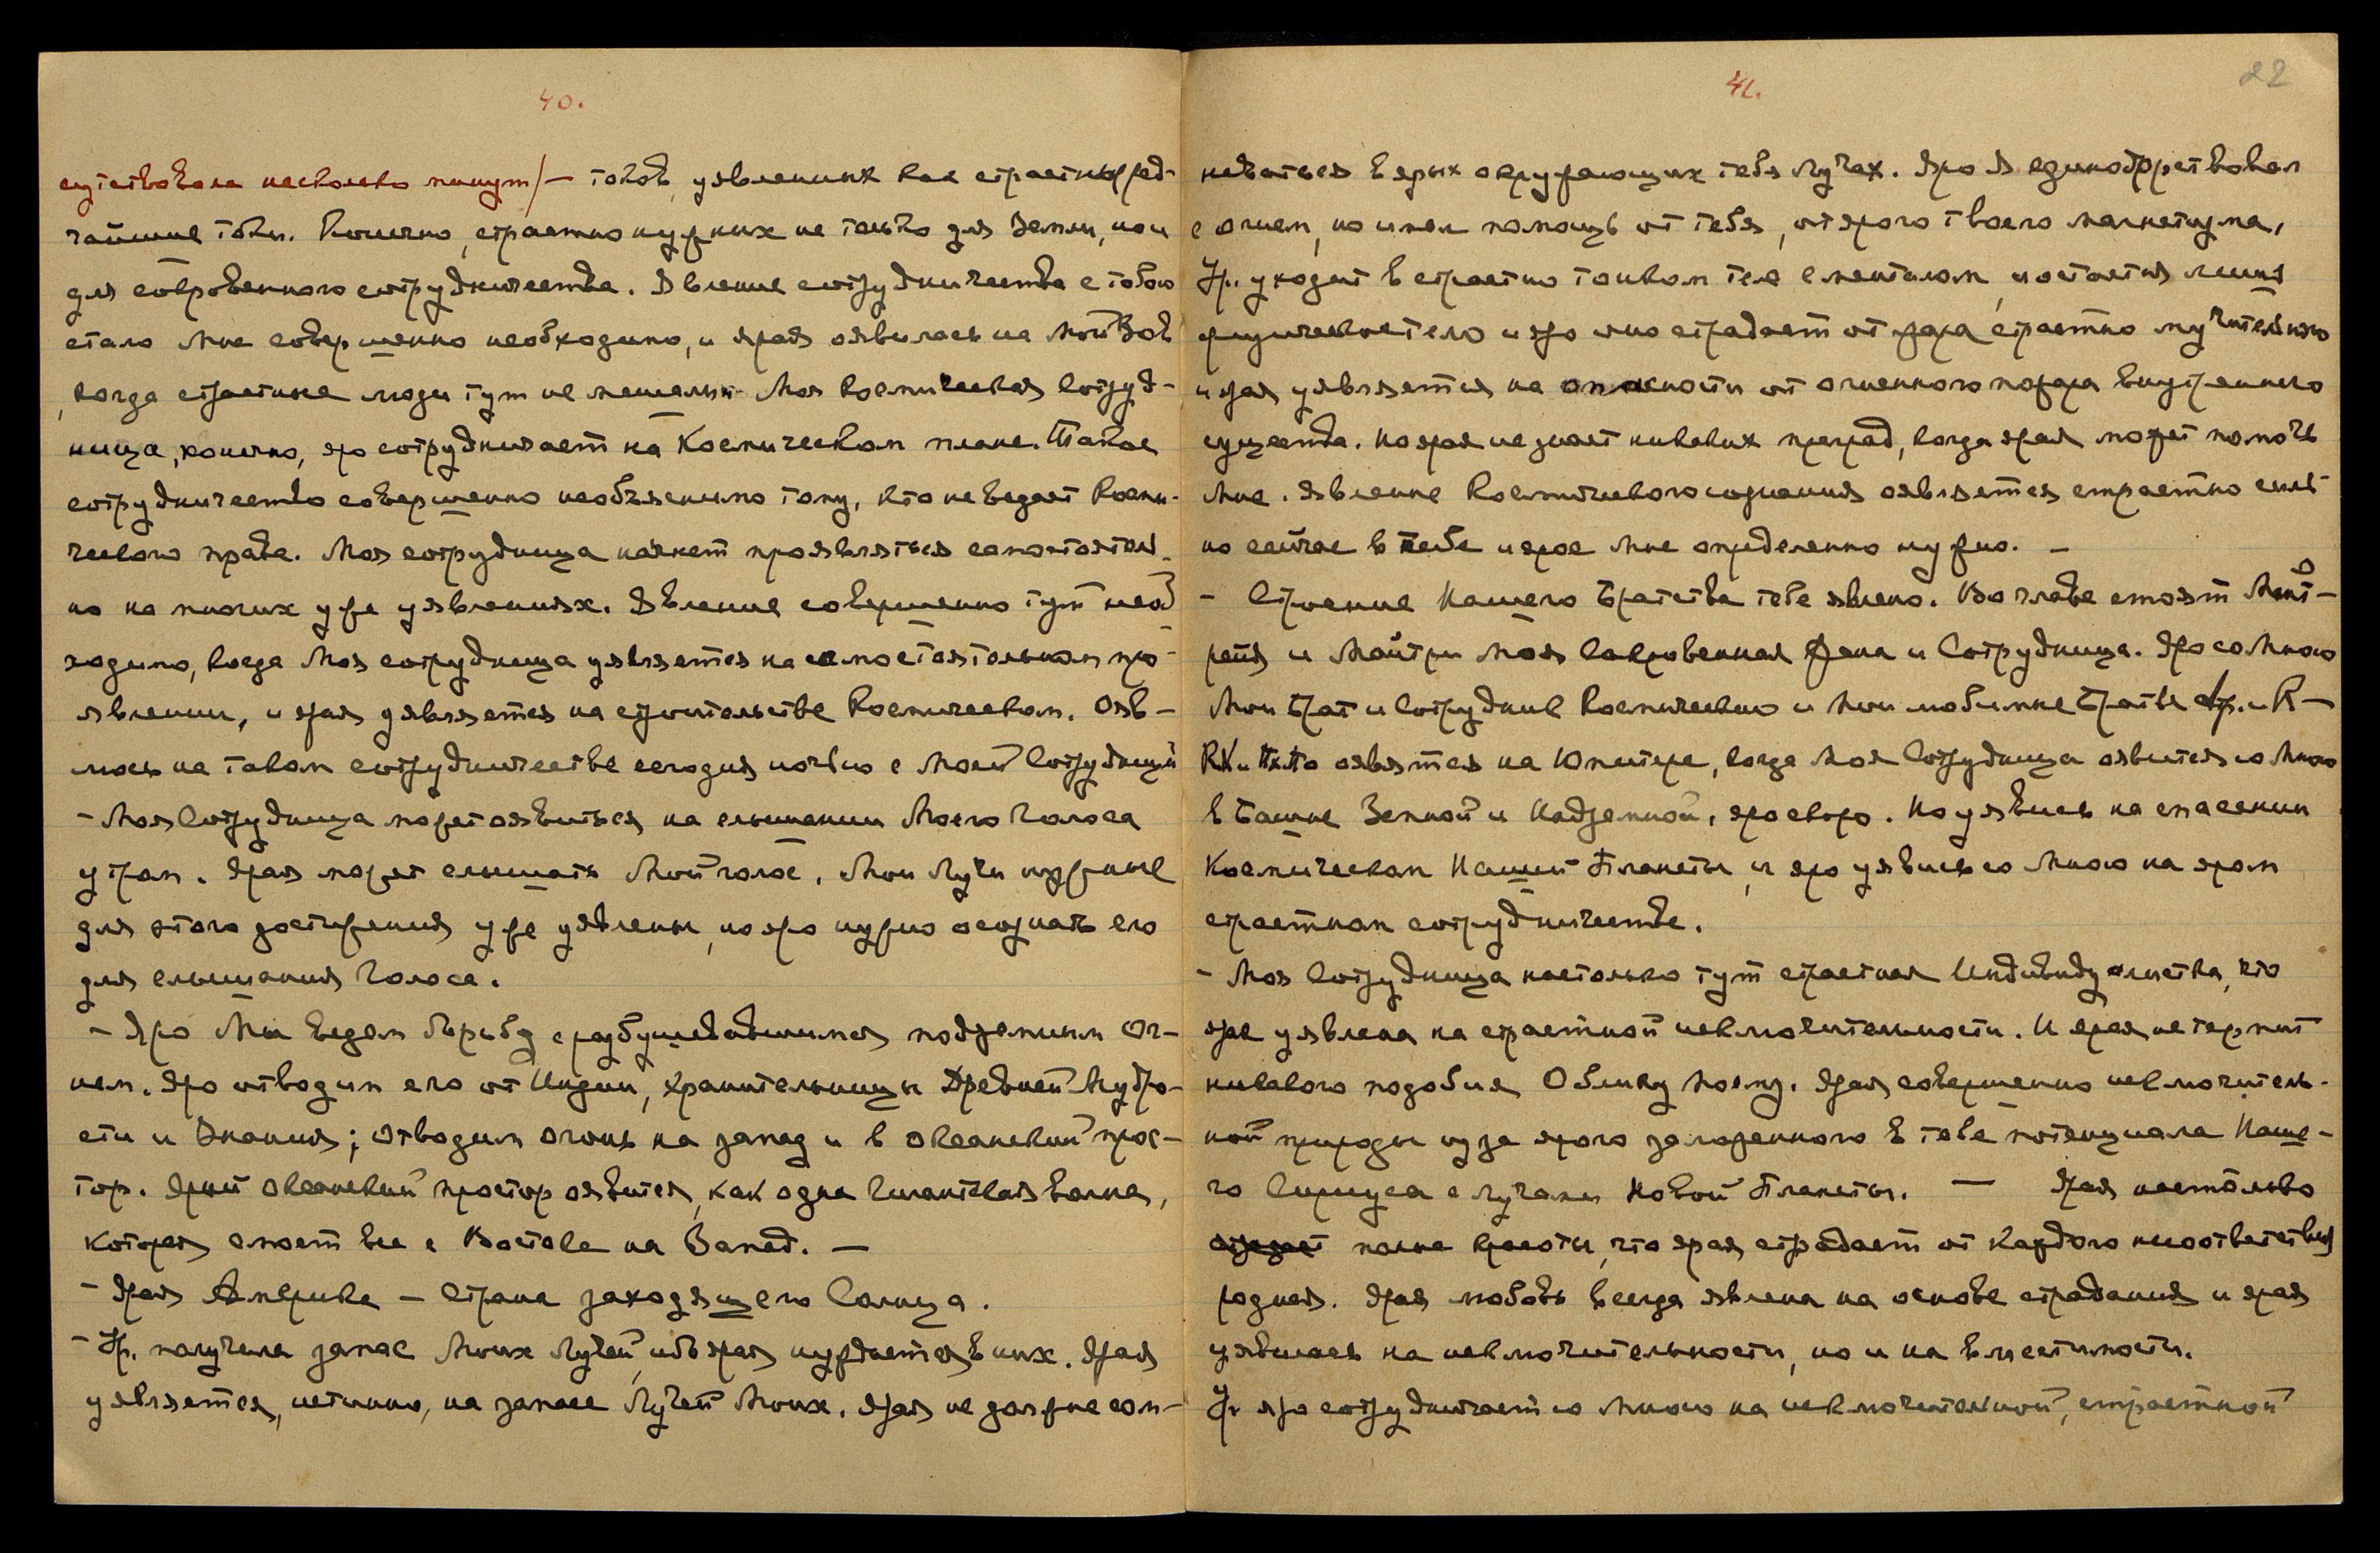 40.
сутствовала несколько минут/ — токов, уявленных как страстно ред-
чайшие токи. Конечно, страстно нужных не только для Земли, но и
для сокровенного сотрудничества. Явление сотрудничества с тобою
стало Мне совершенно необходимо, и ярая оявилась на Мой Зов
, когда страстные люди тут не мешали. Моя Космическая Сотруд-
ница, конечно, яро сотрудничает на Космическом плане. Такое
сотрудничество совершенно необъяснимо тому, кто не ведает Косми-
ческого права. Моя сотрудница начнет проявляться самостоятель-
но на многих уже уявлениях. Явление совершенно тут необ-
ходимо, когда Моя сотрудница уявляется на самостоятельном про-
явлении, и ярая уявляется на строительстве Космическом. Ояв-
люсь на таком сотрудничестве сегодня ночью с Моей Сотрудницей
- Моя Сотрудница может оявиться на слышании Моего Голоса
утром. Ярая может слышать Мой голос. Мои Лучи нужные
для этого достижения уже уявлены, но яро нужно осознать его
для слышания Голоса.
- Яро Мы ведем борьбу с разбушевавшимся подземным Ог-
нем. Яро отводим его от Индии, хранительницы Древней Мудро-
сти и Знания; отводим огонь на запад и в океанский прос-
тор. Ярый океанский простор оявится, как одна Гигантская волна,
которая смоет все с Востока на Запад. —
- Ярая Америка — Страна заходящего Солнца.
- Ур. получила запас Моих Лучей, ибо ярая нуждается в них. Ярая
уявляется, истинно, на запасе Лучей Моих. Ярая не должна сом-
41.
22
неваться в ярых окружающих тебя Лучах. Яро Я единоборствовал
с огнем, но имел помощь от тебя, от ярого твоего магнетизма.
Ур. уходит в страстно тонком теле с менталом, и остается лишь
физическое тело и яро оно страдает от жара страстно мучительного
и ярая уявляется на опасности от огненного пожара внутреннего
существа. Но ярая не знает никаких преград, когда ярая может помочь
Мне. Явление Космического сознания оявляется страстно силь-
но сейчас в тебе и ярое Мне определенно нужно. —
- Строение Нашего Братства тебе явлено. Во главе стоят Майт-
рейя и Майтри Моя Сокровенная Жена и Сотрудница. Яро со Мною
Мой Брат и Сотрудник Космический и Мои любимые Братья и К —
оявятся на Юпитере, когда Моя Сотрудница оявится со Мною
в Башне Земной и Надземной, яро скоро. Но уявись на спасении
Космическом Нашей Планеты, и яро уявись со Мною на яром
страстном сотрудничестве.
- Моя Сотрудница настолько тут страстная Индивидуалистка, что
яро уявлена на страстной исключительности. И ярая не терпит
никакого подобия Облику Моему. Ярая совершенно исключитель-
ной природы из за ярого заложенного в тебе потенциала Наше-
го Сириуса с лучами Новой Планеты. — Ярая настолько
полна красоты, что ярая страдает от каждого несоответствия
родная. Ярая любовь всегда явлена на основе страдания и ярая
уявилась на исключительности, но и на вместимости.
Ур яро сотрудничает со Мною на исключительной, страстной